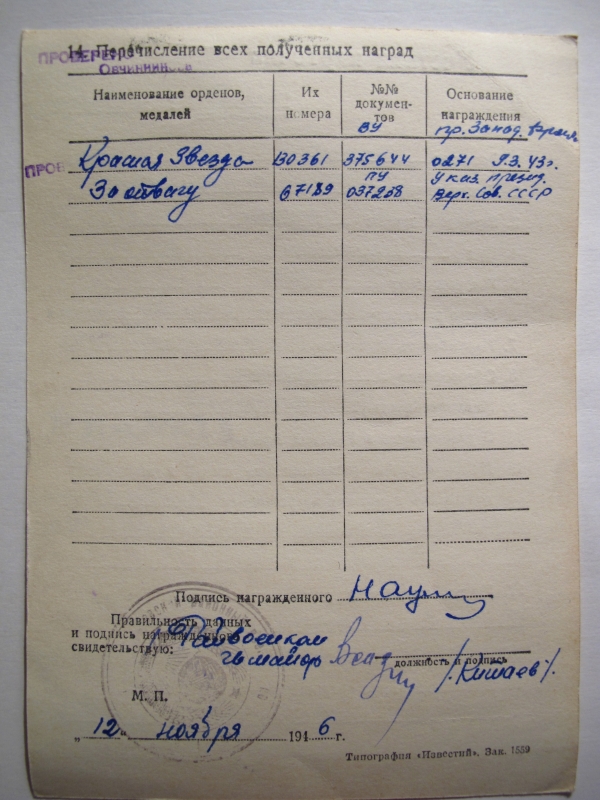 14. Перечисление всех полученных наград
ПРОВЕРЕНО
Овчинников
Наименование орденов, медалей
Их номера
№№ документов
Основание награждения
ВУ
пр. Запад.
ПРОВ
Красная Звезда 130361 375644 0271 9.3.43г.
ПУ Указ. През.
За отвагу 67189 037258 Верх. Сов. СССР
Подпись награжденного
Правильность данных
и подпись награжденного
свидетельствую:
Райвоенком
гв майор
должность и подпись
/Китаев/.
М. П.
„12" ноября 1946 г.
Типография «Известий». Зак. 1559